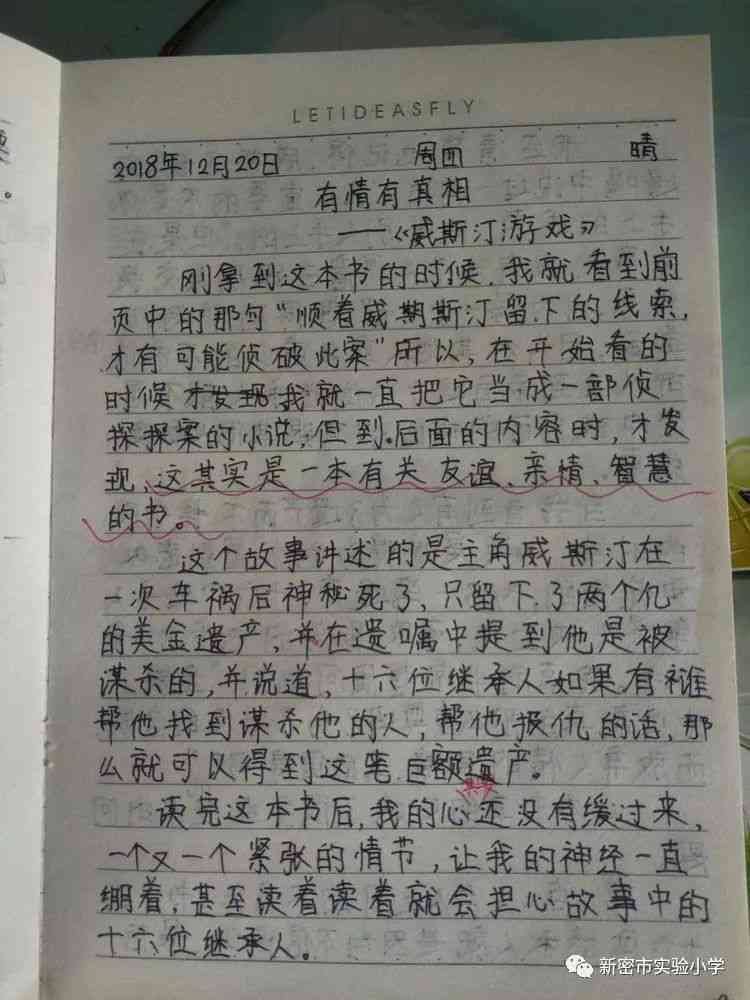 LETIDEASFLY
2018年12月20日 周四 晴
有情有真相
——《威斯汀游戏》
刚拿到这本书的时候，我就看到前
页中的那句“顺着威期斯汀留下的线索，
才有可能侦破此案”所以，在开始看的
时候才发现我就一直把它当成一部侦
探探案的小说，但到后面的内容时，才发
现，这其实是一本有关友谊、亲情、智慧
的书。
这个故事讲述的是主角威斯汀在
一次车祸后神秘死了，只留下了两个亿
的美金遗产，并在遗嘱中提到他是被
谋杀的，并说道，十六位继承人如果有谁
帮他找到谋杀他的人，帮他报仇的话，那
么就可以得到这笔巨额遗产。
读完这本书后，我的心还没有缓过来，
一个又一个紧张的情节，让我的神经一直
绷着，甚至读着读着就会担心故事中的
十六位继承人。
新密市实验小学